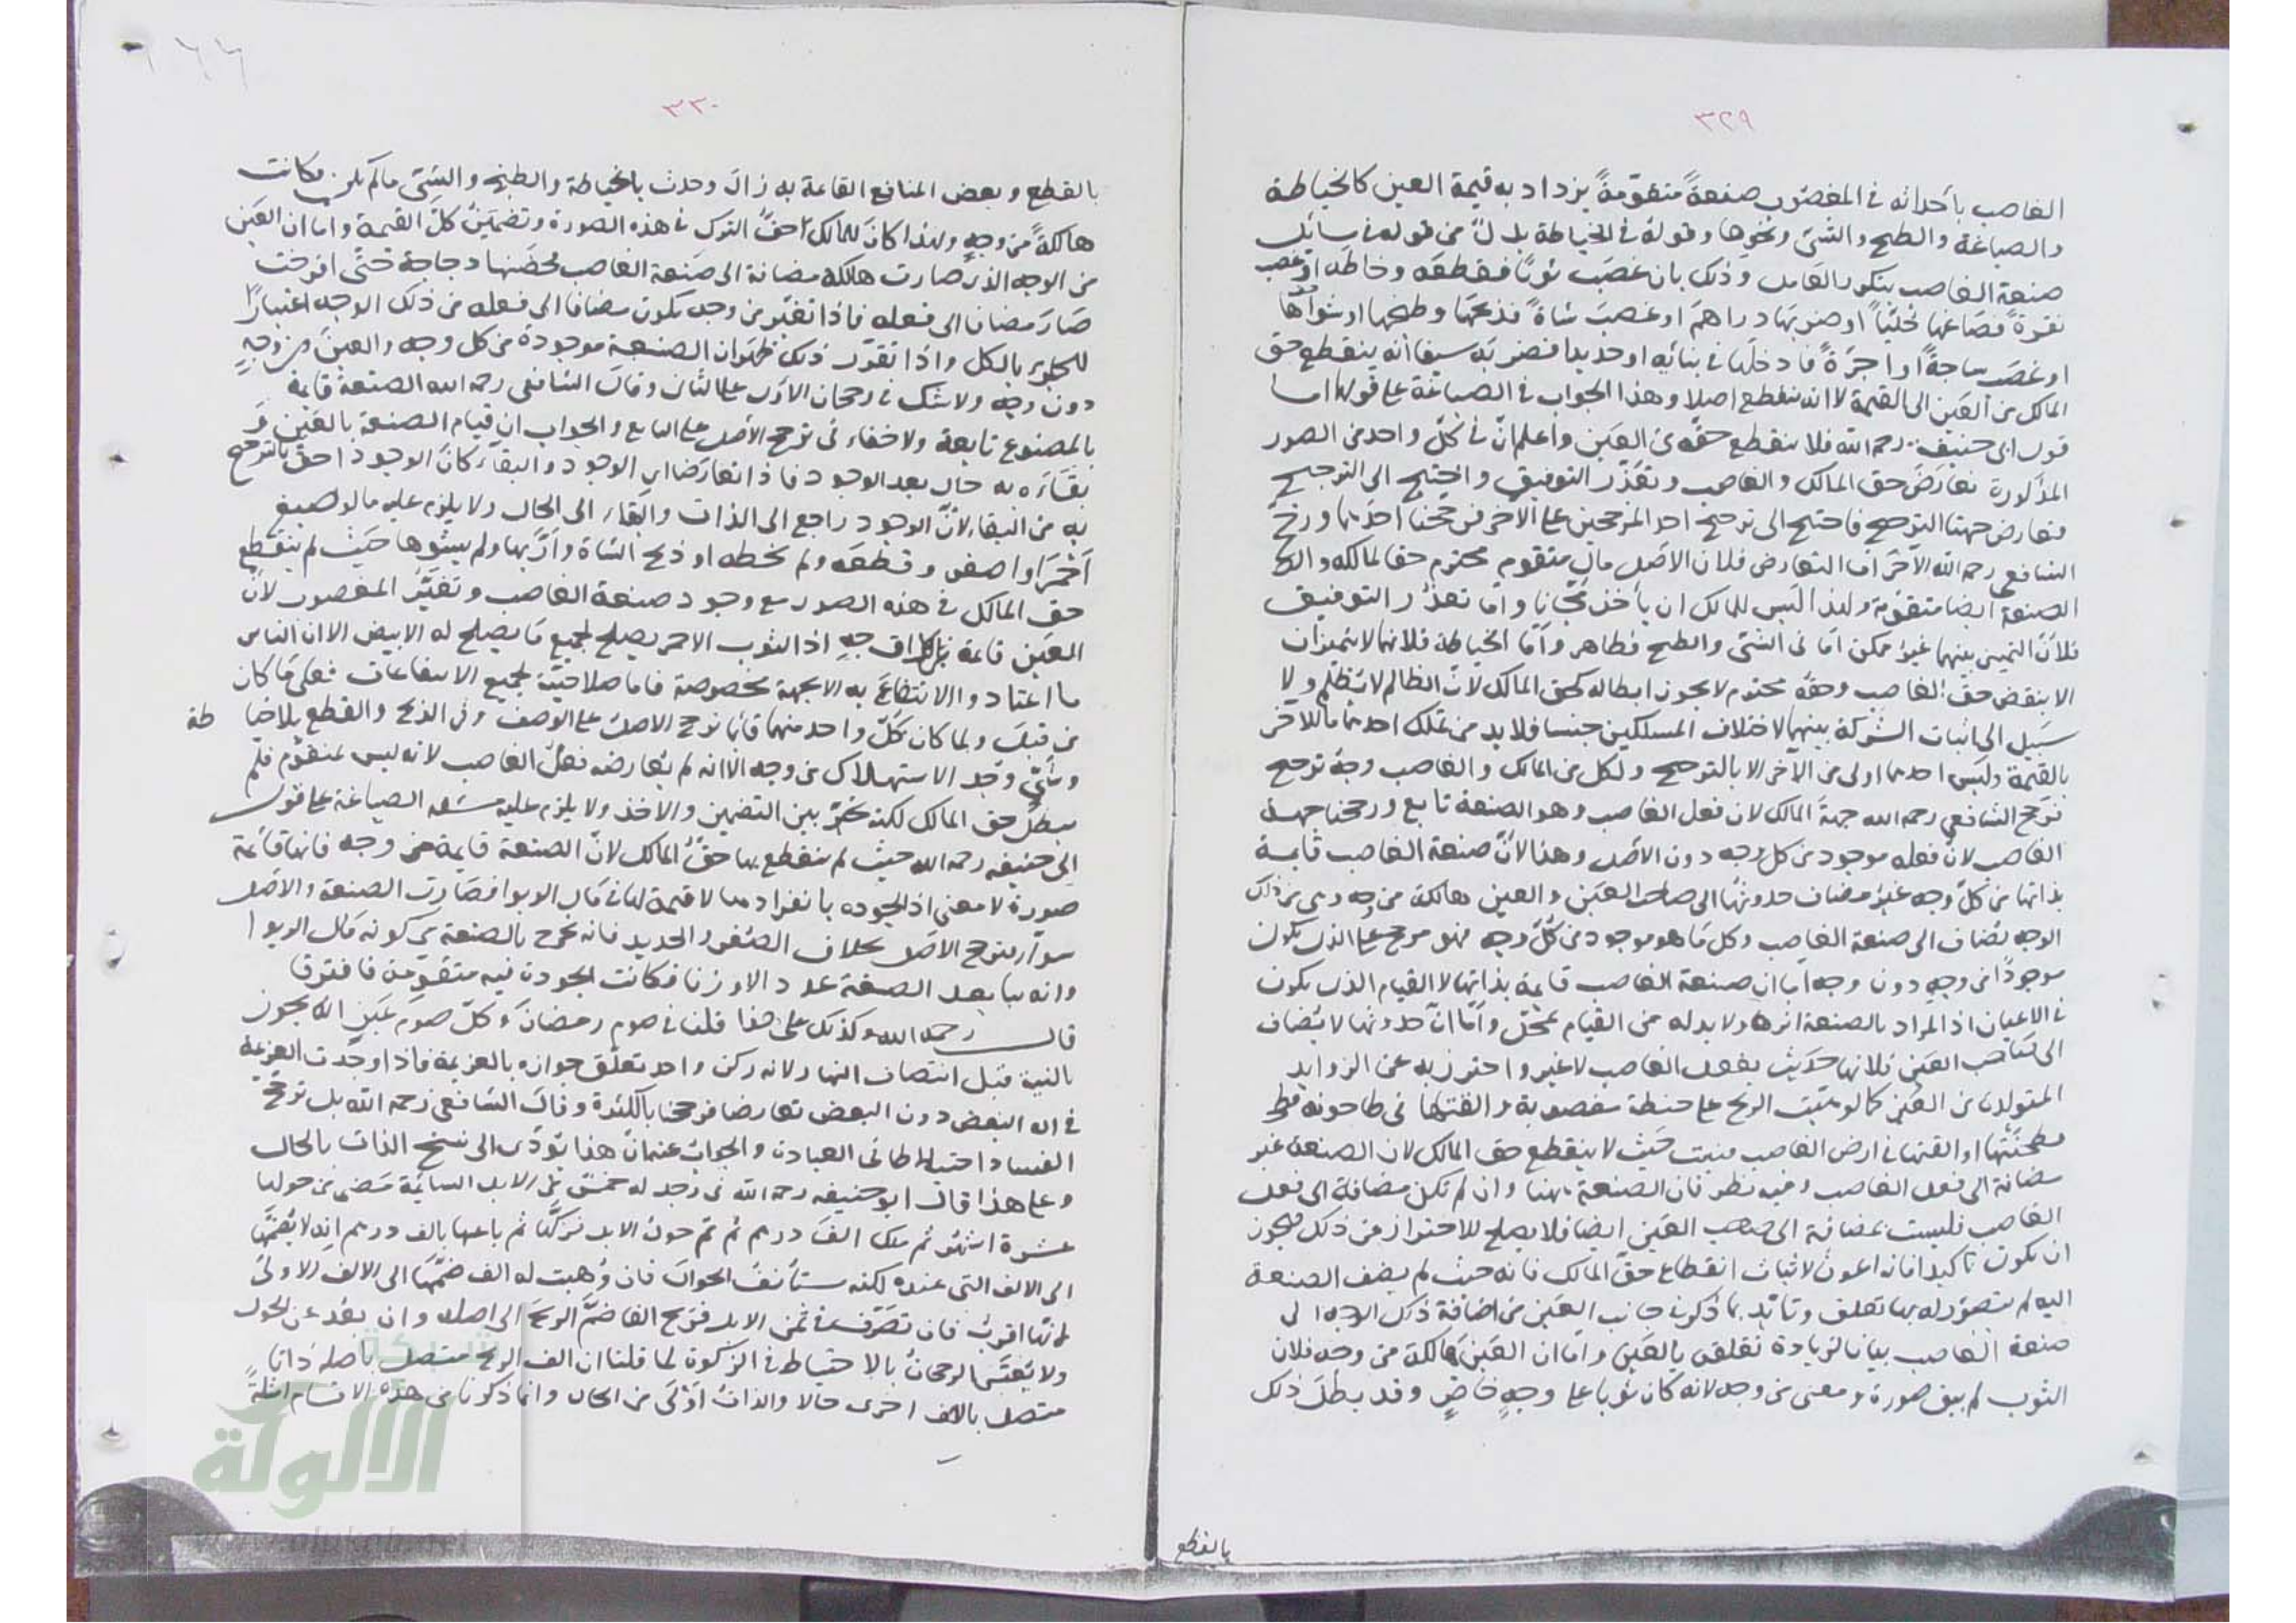 ٣٢٩
الغاصب بأحداثه في المغصوب صنعةً متقوّمةً يزداد به قيمة العين كالخياطة
والصباغة والطبخ والشئ ونحوها وقوله في الخياطة بدلٌ من قوله في سائل
صنعة الغاصب بتكرر العامل وذلك بان غصَب ثوبًا فقطعَه وخاطه او غصب
نقرةً فصَاغها حُليّاً او ضربَها دراهمَ او غصبَ شاةً فذبحَها وطبخها او شواها
او غصَب ساجةً او اجرّةً فادخلَها في بنائه او حديدا فضربَه سيفا أنه ينقطع حق
المالك من العين الى القيمة لا انه ينقطع اصلا وهذا الجواب في الصياغة على قولهما اما
قول ابى حنيفة رحمه الله فلا ينقطع حقّه عن العين واعلم انّ في كلّ واحد من الصور
المذكورة تعارَضَ حق المالك والغاصب وتعذّر التوفيق واحتيج الى الترجيح
وتعارض جهتا الترجيح فاحتيج الى ترجيح احد المرجحين على الآخر فرجحنا احدهما ورجّح
الشافعي رحمه الله الآخَر اما التعارض فلان الاصل مال متقوم محترم حقا لمالكه و
الصنعة ايضا متقوّمة ولهذا لَيس للمالك ان يأخذ مجّانا وامّا تعذّر التوفيق
فلأنّ التمييز بينهما غيرُ ممكن امّا في الشئ والطبخ فظاهر وامّا الخياطة فلانها لا تتميزان
الا بنقض حق الغاصب وحقّه محترم لا يجوز ابطاله كحق المالك لانّ الظالم لا يُظلَم ولا
سَبيل الى اثبات الشركة بينهما لاختلاف المسلكين جنسا فلا بد من تملك احدهما مال الآخر
بالقيمة وليس احدهما اولى من الآخر الا بالترجيح ولكل من المالك والغاصب وجهُ ترجيح
فرجّح الشافعي رحمه الله جهةَ المالك لان فعل الغاصب وهو الصنعة تابع ورجحنا جهة
الغاصب لانّ فعله موجود من كل وجه دون الاصل وهذا لانّ صنعة الغاصب قايمة
بذاتها من كلّ وجه غيرُ مضاف حدوثها الى صاحب العين والعين هالكة من وجه وهى من ذلك
الوجه تضاف الى صنعة الغاصب وكل مَا هو موجود من كلّ وجه فهو مرجح على الذى يكون
موجودًا من وجهٍ دون وجه اما ان صنعة الغاصب قايمة بذاتها لا القيام الذى يكون
فى الاعيان اذ المراد بالصنعة اثرها ولا بد له من القيام بمحلّ وامّا انّ حدوثها لا يضاف
الى صَاحب العين فلانها حديث بفعل الغاصب لا غير واحترز به عن الزوايد
المتولدة من العين كما لو هبّت الريح على حنطة مغصوبة والقتها فى طاحونة
فطحنَتها او القتها في ارض الغاصب فنبتت حَيث لا ينقطع حق المالك لان الصنعة غير
مضافة الى فعل الغاصب وفيه نظر فان الصنعة ههنا وان لم تكن مضافة الى فعل
الغاصب فليست بمضافة الى صاحب العين ايضا فلا يصلح للاحتراز من ذلك فيجوز
ان يكون تاكيدا فانه اعون لاثبات انقطاع حقّ المالك فانه حيث لم يضف الصنعة
اليه لم يتصوّر له بها تعلق وتأيّد بما ذكر من جانب العين من اضافة ذلك الوجه الى
صنعة الغاصب بيانا لزيادة تعلقه بالعين وامّا ان العين هَالكة من وجه فلان
الثوب لم يبق صورة ومعنى من وجه لانه كان ثوبا على وجهٍ خاصٍ وقد بطلَ ذلك
بالقطع
٣٣٠
بالقطع وبعض المنافع القاعة به زالَ وحدث بالخياطة والطبخ والشئ ما لم يكن فكانت
هالكةً من وجهٍ ولهذا كانَ للمالك احقُّ الترك في هذه الصورة وتضمينُ كلّ القيمة واما ان العَين
من الوجه الذى صارت هالكة مضافة الى صَنعة الغاصب لحضنها دجاجة حتّى افرخت
صَارَ مضافا الى فعله فاذا تغيّر من وجه يكون مضافا الى فعله من ذلك الوجه اعتبارًا
للجزء بالكل واذا تقرّر ذلك ظهَر ان الصنعة موجودة من كل وجه والعينَ من وجهٍ
دون وجه ولا شك في رجحان الاول على الثانى وقالَ الشافعى رحمه الله الصنعة قايمة
بالمصنوع تابعة ولا خفاء فى ترجح الأصل على التابع والجواب ان قيام الصنعة بالعَين وَ
بقاءَه به حال بعد الوجود فاذا تعارَضا اى الوجود والبقاء كان الوجود احقّ بالترجيح
به من البقاء لأنّ الوجود راجع الى الذات والبقاء الى الحال ولا يلزم عليه ما لو صبغ
احمَرا واصفر وقطعَه ولم يخطه او ذبح الشاة وأرَّبها ولم يشوها حَيث لم ينقطع
حق المالك في هذه الصور مع وجود صنعة الغاصب وتغيّر المغصوب لانّ
العَين قايمة من كل وجهٍ اذ الثوب الاحمر يصلح لجميع مَا يصلح له الابيض الا ان الناس
ما اعتادوا الانتفاعَ به الا بجهة مخصوصة فاما صلاحيّة لجميع الانتفاعات فعلى مَا كان
من قبلَ ولما كان كلّ واحد منهما قائما ترجح الاصلُ على الوصف وفى الذبح والقطع بلا خيا طة
وشئ وجد الاستهلاك من وجه الّا انه لم يعارضه فعلُ الغاصب لانه ليس بمتقوّم فلم
يبطل حق المالك لكنه تخيّر بين التضمين والاخذ ولا يلزم عليه الصياغة على قول
ابى حنيفه رحمه الله حيث لم ينقطع بها حقُّ المالك لانّ الصنعة قايمة من وجه فانها قائمة
صورة لا معنى اذ الجوده بانفرادها لا قيمة لها في مَال الربوا فصَارت الصنعة والاصل
سواء فترجح الاصَل بخلاف الصُفر والحديد فانه يخرج بالصنعة من كونه مَال الربوا
وانه يباع بعد الصنعة عددا لا وزنا فكانت الجودة فيه متقوّمة فافترقا
قال رحمه الله وكذلك على هذا قلنا فى صوم رمضانَ وكلّ صوم عَين انه يجوز
بالنية قبل انتصاف النهار لانه ركن واحد تعلّق جوازه بالعزيمة فاذا وجدت العزيمة
في البعض دون البعض تعارضا فرجحنا بالكثرة وقالَ الشافعى رحمه الله بل ترجّح
الفساد احتياطا فى العبادة والجواب عنه انّ هذا يؤدّى الى نسخ الذات بالحال
وعلى هذا قال ابو حنيفه رحمه الله فى رجل له خمسٌ من الابل السائمة مَضى من حولها
عشرة اشهر ثم ملك الفَ درهم ثم تمّ حولُ الابل فزكّاها ثم باعها بالف درهم انه لا يضمّها
الى الالف التى عنده لكنه يستأنف الحول فان وُهبت له الف ضمّها الى الالف الاولى
لانّها اقربُ فان تصَرّف في ثمن الابل فرَبح الفا ضَمَّ الربحَ الى اصله وان بعُد عن الحول
ولا يعتبر الرجحانُ بالاحتياط في الزكوة لما قلنا ان الف الربح متصل باصله ذاتا
متصل بالالف اخرى حالا والذاتُ اَوْلَى من الحال وانما ذكرنا من هذه الاقسام امثلةً
شبكة
الألوكة
www.alukah.net